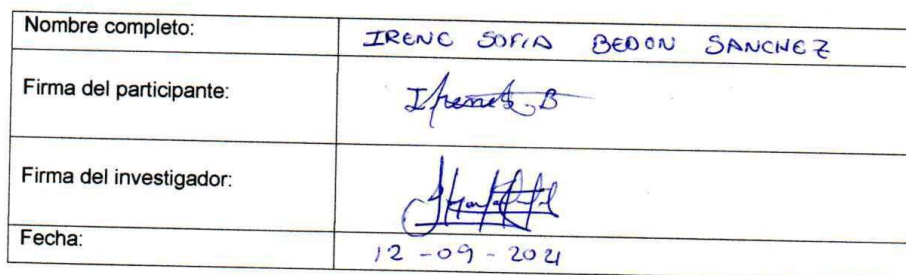 Nombre completo: IRENE SOFIA BEDON SANCHEZ
Firma del participante:
Firma del investigador:
Fecha: 12-09-2021